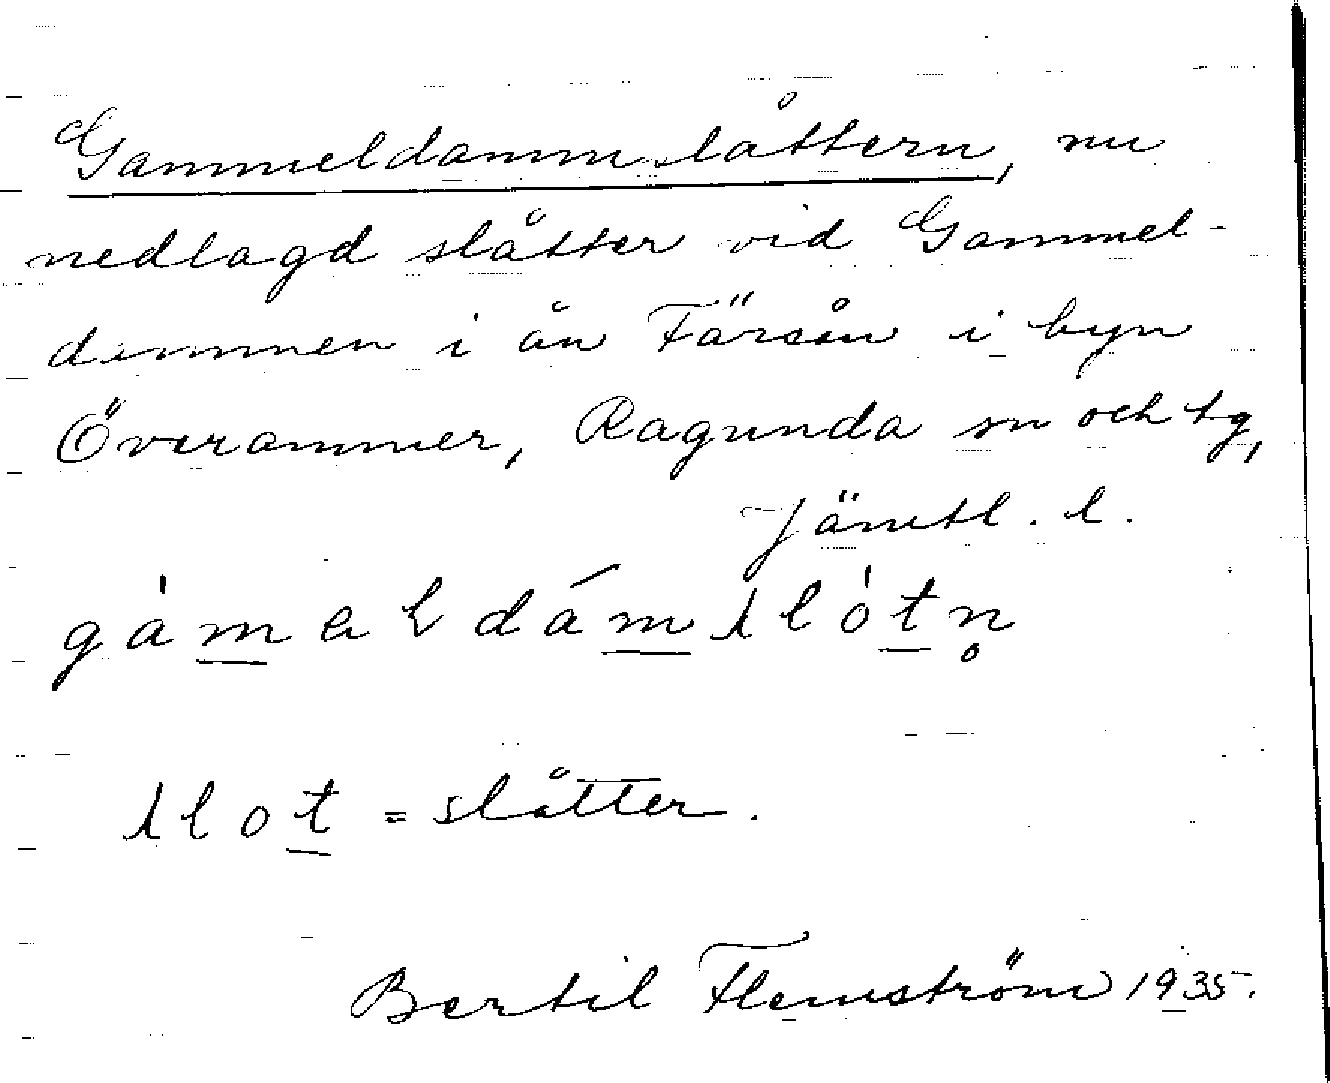 Gammeldammslåttern, nu
nedlagd slåtter vid Gammel-
dammen i ån Färsån i byn
Överammer, Ragunda sn och tg,
Jämtl. l.
gàmaɫdámslòtn̥
slot = slåtter.
Bertil Flemström 1935.